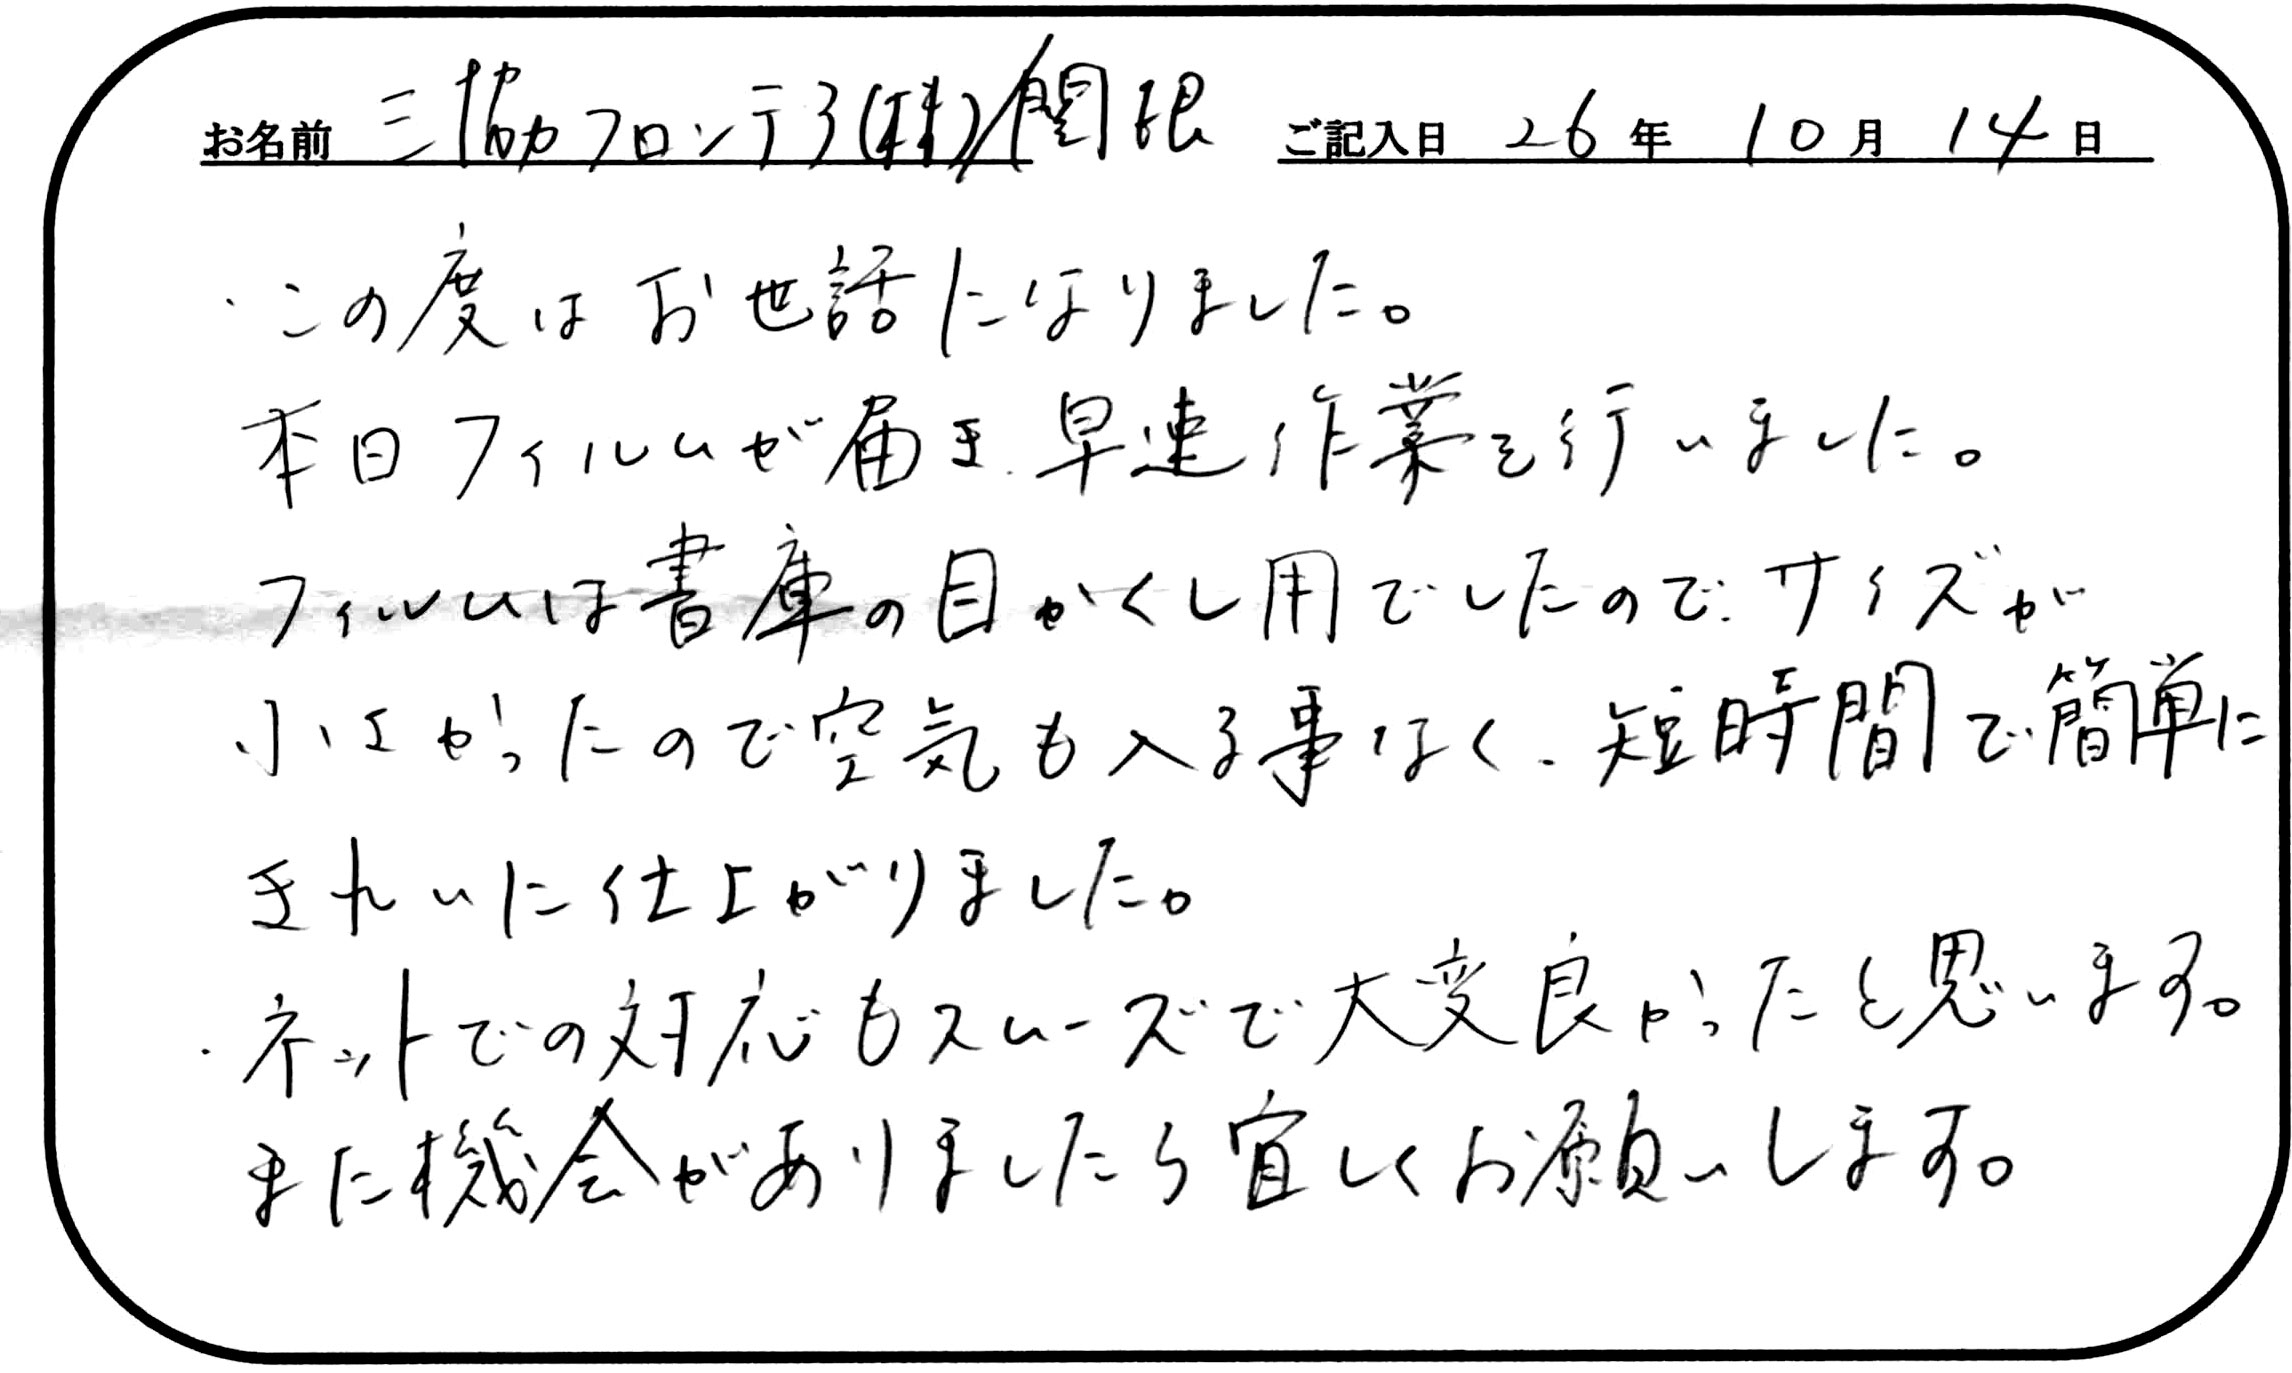 お名前 三協フロンテア(株)/関根 ご記入日 26年 10月 14日
・この度はお世話になりました。
本日フィルムが届き、早速作業を行いました。
フィルムは書庫の目かくし用でしたので、サイズが
小さかったので空気も入る事なく、短時間で簡単に
きれいに仕上がりました。
・ネットでの対応もスムーズで大変良かったと思います。
また機会がありましたら宜しくお願いします。